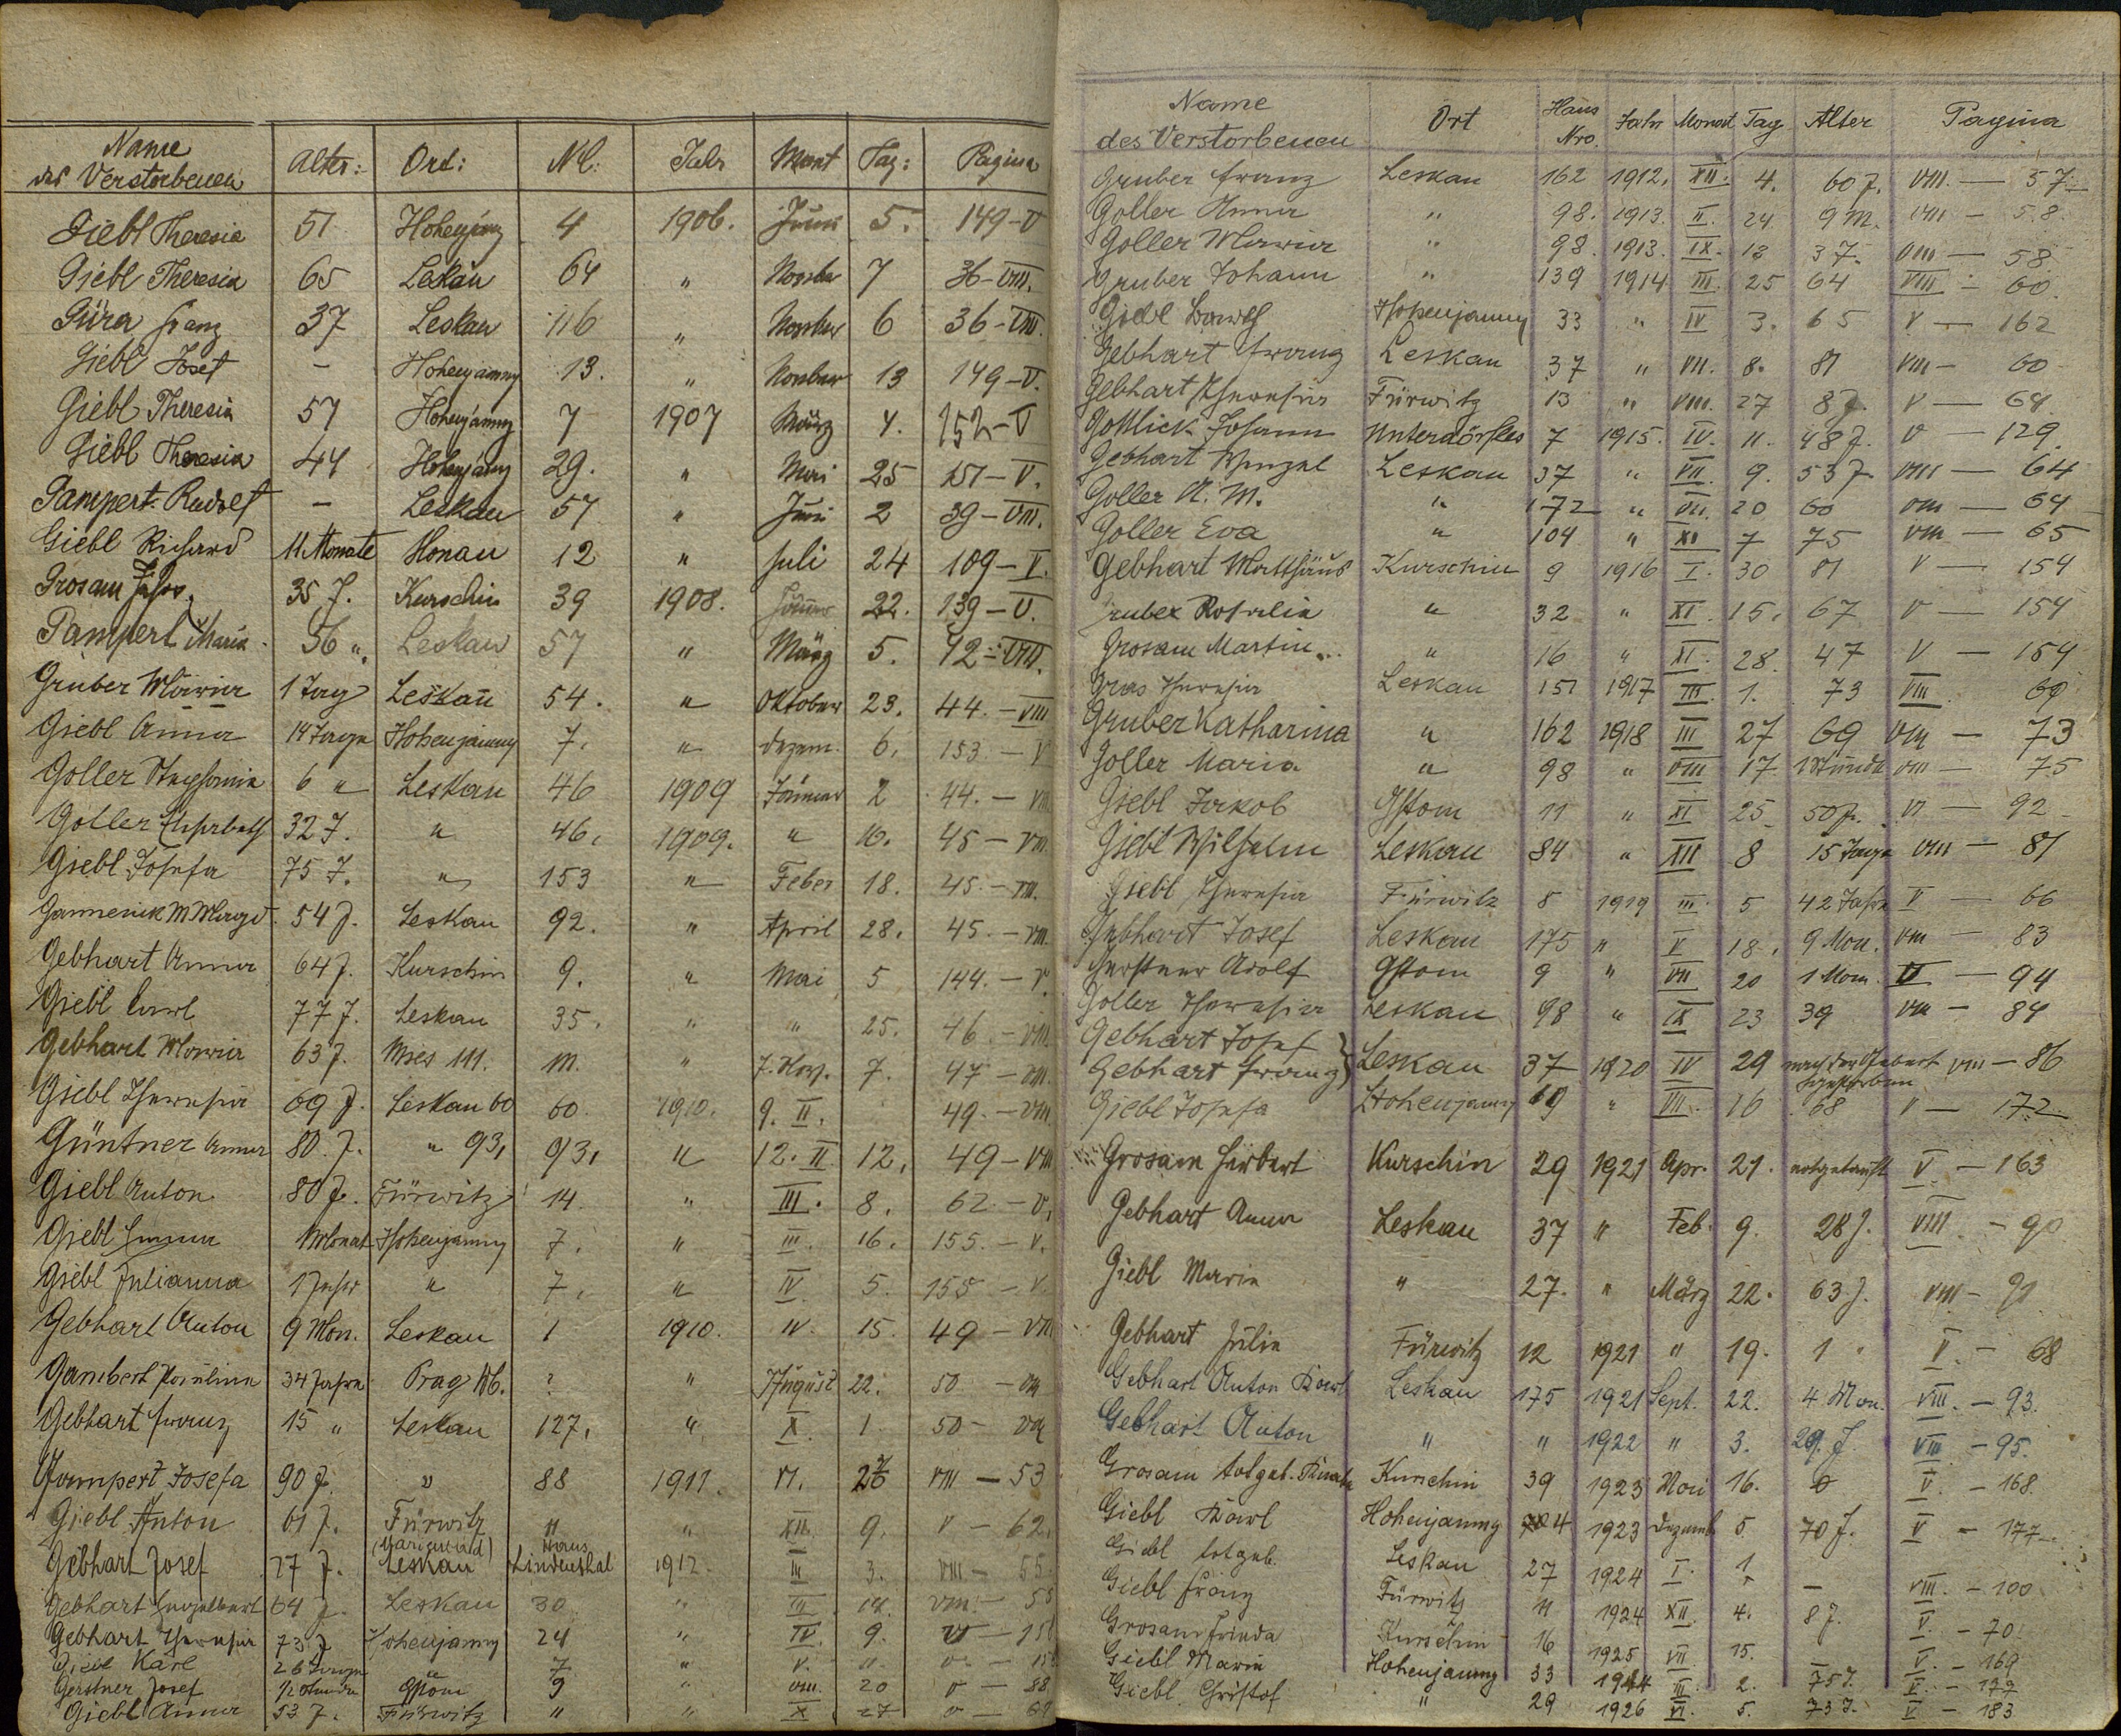 Name des Verstorbenen Alter: Ort: No: Jahr Monat Tag: Pagina
Giebl Theresia 51 Hohenjamny 4 1906. Juni 5. 149-V
Giebl Theresia 65 Leskau 64 " 7 36-VIII.
Franz 37 Leskau 116 " 6 36-VIII.
Giebl Josef - Hohenjamny 13. " 13 149-V.
Giebl Theresia 57 Hohenjamny 7 1907 März 4. 152-V
Giebl Theresia 44 Hohenjamny 29. " Mai 25 151-V.
Gampert Rudolf - Leskau 57 " Juni 2 39-VIII.
Giebl Richard 11 Monate Honau 12 " Juli 24 109-V.
Grosam 35 J. Kurschin 39 1908. 22. 139-V.
Gampert Maria 56 " Leskau 57 " März 5. 42-VIII.
Gruber Maria 1 Tag Leskau 54. " Oktober 23. 44.-VIII
Giebl Anna 14 Tage Hohenjamny 7. " Dezem. 6. 153.-V
Goller Stephanie 6 " Leskau 46 1909 Jänner 2 44.-VIII
Goller Elisabeth 32 J. " 46. 1909. " 10. 45-VIII.
Giebl Josefa 75 J. " 153 " Feber 18. 45.-VIII.
54 J. Leskau 92. " April 28. 45.-VIII.
Gebhart Anna 64 J. Kurschin 9. " Mai 5 144.-V.
Giebl Karl 77 J. Leskau 35. " " 25. 46-VIII.
Gebhart Maria 63 J. Mies 111. 111. " 7. Nov. 7. 47-VIII.
Giebl Theresia 69 J. Leskau 60 60. 1910. 9. II. 49.-VIII
Güntner Anna 80. J. " 93, 93, " 12. II. 12. 49-VIII
Giebl Anton 80 J. Fürwitz 14. " III. 8. 62-V.
Giebl Emma Monat Hohenjamny 7. " III. 16. 155.-V.
Giebl Julianna 1 Jahr " 7. " IV. 5. 155-V
Gebhart Anton 9 Mon. Leskau 1 1910. IV. 15. 49-VIII
Gambert Paulina 34 Jahre Prag ? " August 22. 50-VIII
Gebhart Franz 15 " Leskau 127. " X. 1. 50-VIII
Gampert Josefa 90 J. " 88 1911. VI. VIII-53
Giebl Anton 61 J. Fürwitz 11 " XII. 9. V-62.
Gebhart Josef 27 J. (Marienbad) Leskau Haus Lindenthal 1912. III 3. VIII-55.
Gebhart Engelbert 64 J. Leskau 30 " III 14. VIII-55
Gebhart Theresia 73 J. Hohenjamny 24 " IV. 9.
Giebl Karl 26 Tage " 7 " V. 11.
Gerstner Josef 1/2 Stunde Gstom 9 " VIII. 20 V-88
Giebl Anna 53 J. Fürwitz " " X 27
Name des Verstorbenen Ort Haus Nro. Jahr Monat Tag Alter Pagina
Gruber Franz Leskau 162 1912. XII. 4. 60 J. VIII.-57
Goller Anna " 98. 1913. II. 24 9 M. VIII-58.
Goller Maria " 98. 1913. IX. 13 37. VIII-58
Gruber Johann " 139 1914 III. 25 64 VIII-60.
Giebl Hohenjamny 33 " IV 3. 65 V-162
Gebhart Franz Leskau 37 " VII. 8. 81 VIII-60
Gebhart Theresia Fürwitz 13 " VIII. 27 V-64
Gottlick Johann Unterdörfles 7 1915. IV. 11. 48 J. V-129.
Gebhart Wenzel Leskau 37 " VII. 9. 53 J. VIII-64
Goller A. M. " 172 " VII. 20 60 VIII-64
Goller Eva " 104 " XI 7 75 VIII-65
Gebhart Matthäus Kurschin 9 1916 I. 30 81 V-154
Gruber Rosalia " 32 " XI. 15. 67 V-154
Grosam Martin " 16 " XI. 28. 47 V-154
Gras Theresia Leskau 151 1917 III. 1. 73 VIII.
Gruber Katharina " 162 1918 III 27 69 VIII-73
Goller Maria " 98 " VIII 17 1 Stunde VIII-75
Giebl Jakob Gstom 11 " XI 25 50 J. VI-92
Giebl Wilhelm Leskau 84 " XII 8 15 Tage VIII-81
Giebl Theresia Fürwitz 8 1919 III 5 42 Jahre V-66
Gebhart Josef Leskau 175 " V 18. 9 Mon. VIII-83
Gerstner Adolf Gstom 9 " VII 20 1 Mon. VI-94
Goller Theresia Leskau 98 " IX 23 39 VIII-84
Gebhart Josef
Gebhart Franz } Leskau 37 1920 IV 29 nach der Geburt gestorben VIII-86
Giebl Josefa Hohenjamny " VII. 16 68 V-172
Grosam Herbert Kurschin 29 1921 Apr. 21. notgetauft V.-163
Gebhart Anna Leskau 37 " Feb. 9. 28 J. VIII.-90
Giebl Maria " 27. " März 22. 63 J. VIII-91
Gebhart Julia Fürwitz 12 1921 " 19. 1 " V.-68
Gebhart Anton Karl Leskau 175 1921 Sept. 22. 4 Mon. VIII.-93.
Gebhart Anton " " 1922 " 3. 29. J VIII-95.
Grosam totgeb. Kurschin 39 1923 Mai 16. 0 V.-168.
Giebl Karl Hohenjamny 4 1923 Dezemb 5. 70 J. V-177.
Giebl totgeb. Leskau 27 1924 I. 1 - VIII.-100
Giebl Franz Fürwitz 11 1924 XII. 4. 8 J. V.-70.
Grosam Frieda Kurschin 16 1925 VII. 15. - V.-169
Giebl Maria Hohenjamny 33 III. 2. 75 J. V.-179
Giebl Christof " 29 1926 VI. 5. 73 J. V-183